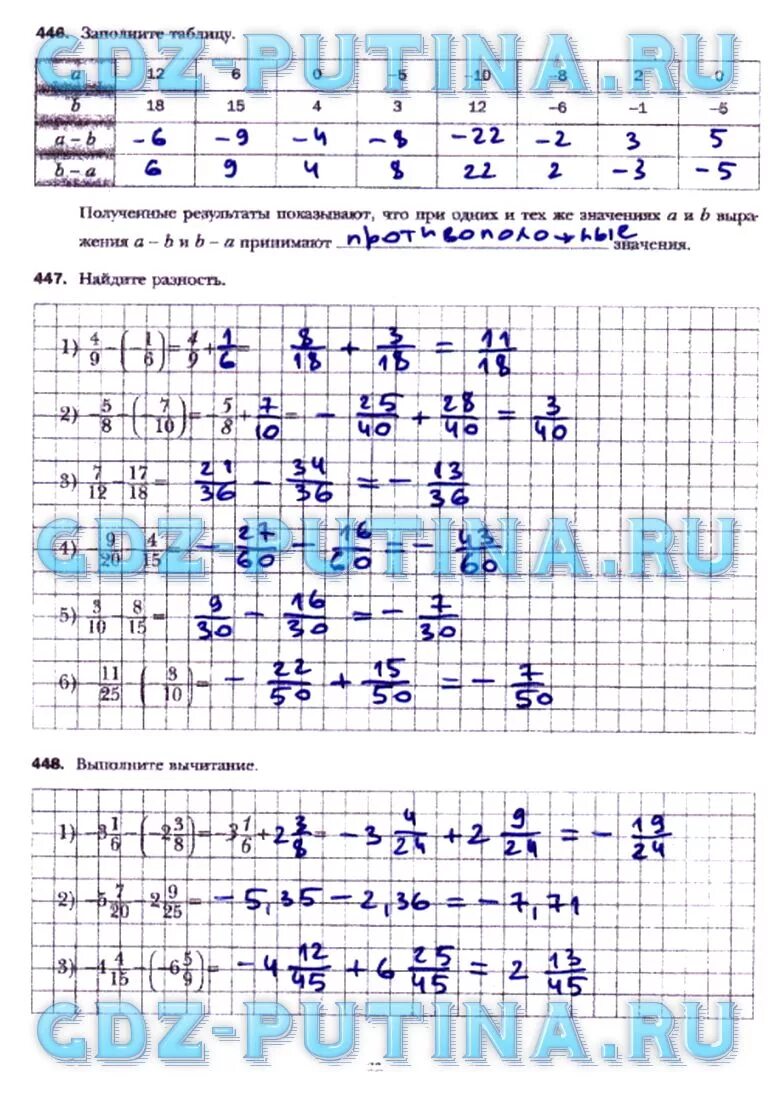 446. Заполните таблицу.
GDZ-PUTINA.RU
a 12 6 0 -5 -10 -8 2 0
b 18 15 4 3 12 -6 -1 -5
a - b -6 -9 -4 -8 -22 -2 3 5
b - a 6 9 4 8 22 2 -3 -5
Полученные результаты показывают, что при одних и тех же значениях a и b выра-
жения a - b и b - a принимают противоположные значения.
447. Найдите разность.
1) 4/9 - (-1/6) = 4/9 + 1/6 = 8/18 + 3/18 = 11/18
2) -5/8 - (-7/10) = -5/8 + 7/10 = - 25/40 + 28/40 = 3/40
3) 7/12 - 17/18 = 21/36 - 34/36 = - 13/36
4) -9/20 - 4/15 = - 27/60 - 16/60 = - 43/60
GDZ-PUTINA.RU
5) 3/10 - 8/15 = 9/30 - 16/30 = - 7/30
6) -11/25 - (-3/10) = - 22/50 + 15/50 = - 7/50
448. Выполните вычитание.
1) -3 1/6 - (-2 3/8) = -3 1/6 + 2 3/8 = -3 4/24 + 2 9/24 = - 19/24
2) -5 7/20 - 2 9/25 = -5,35 - 2,36 = -7,71
3) -4 4/15 - (-6 5/9) = -4 12/45 + 6 25/45 = 2 13/45
GDZ-PUTINA.RU